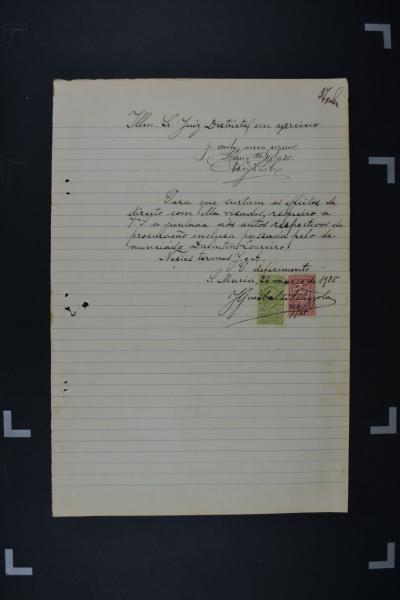 Illm. Sr. Juiz Districtal em exercicio
J. aos autos
Para que surtam os effeitos de
direito com ella visados, requeiro a
V. S. a juntada aos autos respectivos da
procuração inclusa passada pelo de
nunciado Dalmton Loureiro.
Nestes termos J. e A.
P. P. deferimento
S. Maria, 26 março de 1935